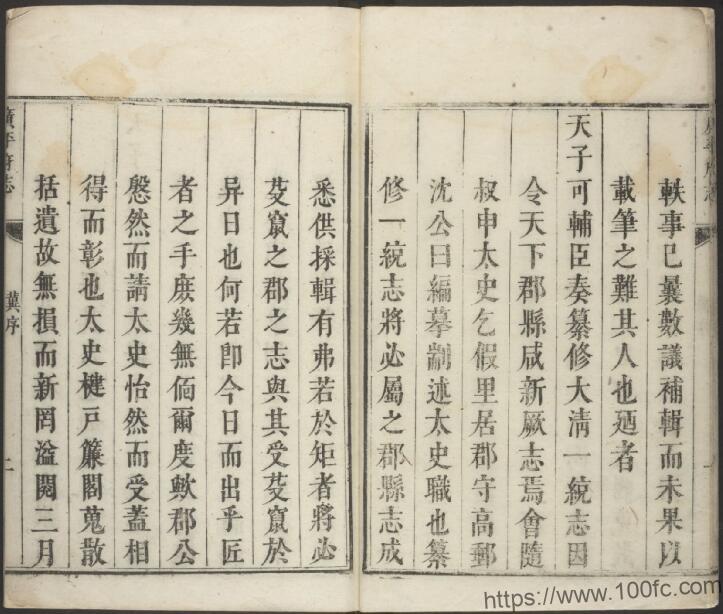 軼事已曩數議補輯而未果以
載筆之難其人也廼者
天子可輔臣奏纂修大清一統志因
令天下郡縣咸新厥志焉會隨
叔申太史乞假里居郡守高郵
沈公曰編摹劄述太史職也纂
修一統志將必屬之郡縣志成
悉供採輯有弗若於矩者將必
芟竄之郡之志與其受芟竄於
异日也何若卽今日而出乎匠
者之手庶幾無偭爾度歟郡公
慇然而請太史怡然而受蓋相
得而彰也太史楗戸簾閣蒐散
括遺故無損而新罔溢閱三月
廣平府志
冀序
二
https://www.100fc.com